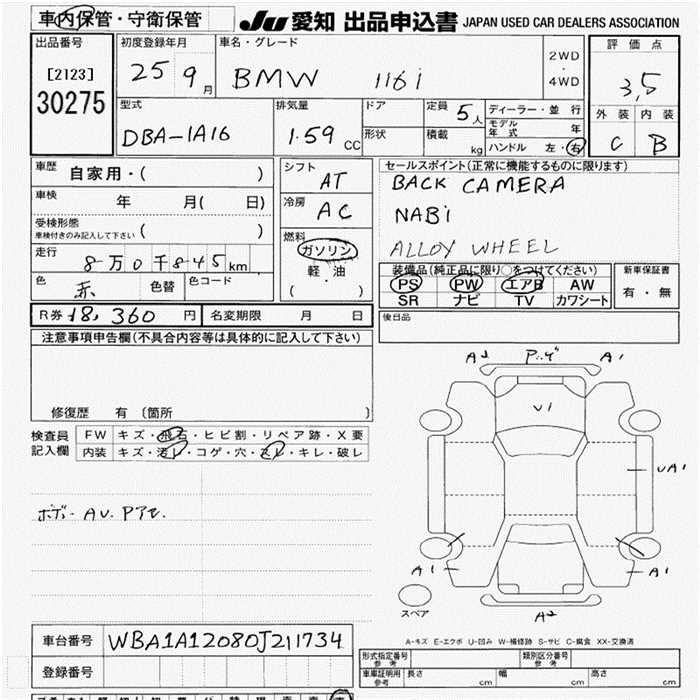 車内保管・守衛保管 JU 愛知 出品申込書 JAPAN USED CAR DEALERS ASSOCIATION
出品番号 初度登録年月 車名・グレード 2WD・4WD 評価点
[2123] 25 9月 BMW 116i 3,5
30275
型式 排気量 ドア 定員 5人 ディーラー・並行 外装 内装
DBA-1A16 1.59CC 形状 積載 kg モデル年式 年 C B
ハンドル 左・右
車歴 自家用・( ) シフト AT セールスポイント(正常に機能するものに限ります)
車検 年 月( 日) 冷房 AC BACK CAMERA
受検形態 NABi
車検付きのみ記入して下さい ( ) 燃料 ALLOY WHEEL
走行 8万0千845km ガソリン 装備品(純正品に限り○をつけてください) 新車保証書
色 赤 色替 色コード 軽・油 PS PW エアB AW 有・無
( ) SR ナビ TV カワシート
R券 18,360円 名変期限 月 日 後日品
注意事項申告欄(不具合内容等は具体的に記入して下さい)
修復歴 有 〔箇所 〕
検査員 FW キズ・飛石・ヒビ割・リペア跡・X要
記入欄 内装 キズ・汚レ・コゲ・穴・スレ・キレ・破レ
A2 A1
U1
UA1
A1 A1
スペア A2
A-キズ E-エクボ U-凹み W-補修跡 S-サビ C-腐食 XX-交換済
車台番号 WBA1A12080J211734
登録番号
形式指定番号 参考 類別区分番号 参考
車庫証明用 参考 長さ cm 幅 cm 高さ cm